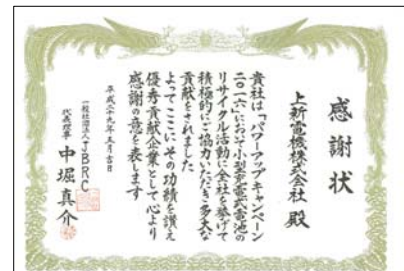 感謝状
上新電機株式会社 殿
貴社は「パワーアップキャンペーン
二〇一六」において小型充電式電池の
リサイクル活動に全社を挙げて
積極的にご協力いただき多大な
貢献をされました
よってここにその功績を讃え
優秀貢献企業として心より
感謝の意を表します
平成二十九年五月吉日
一般社団法人JBRC
代表理事 中堀真介